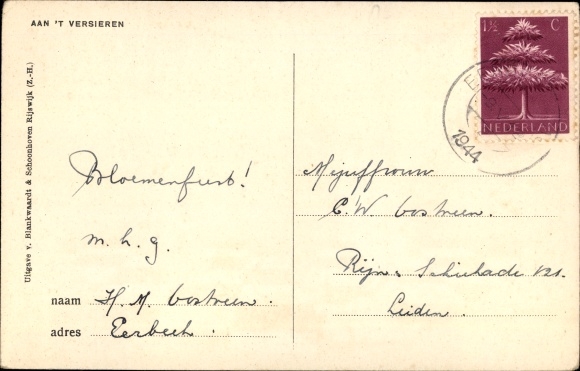 AAN 'T VERSIEREN
Uitgave v. Blankwaardt & Schoonhoven Rijswijk (Z.-H.)
Bloemenfeest!
m. h. g.
naam H. M. Oostveen.
adres Eerbeek.
1½ C
NEDERLAND
1944
Mejuffrouw
C. W. Oostveen.
Rijn & Schiekade 121.
Leiden.